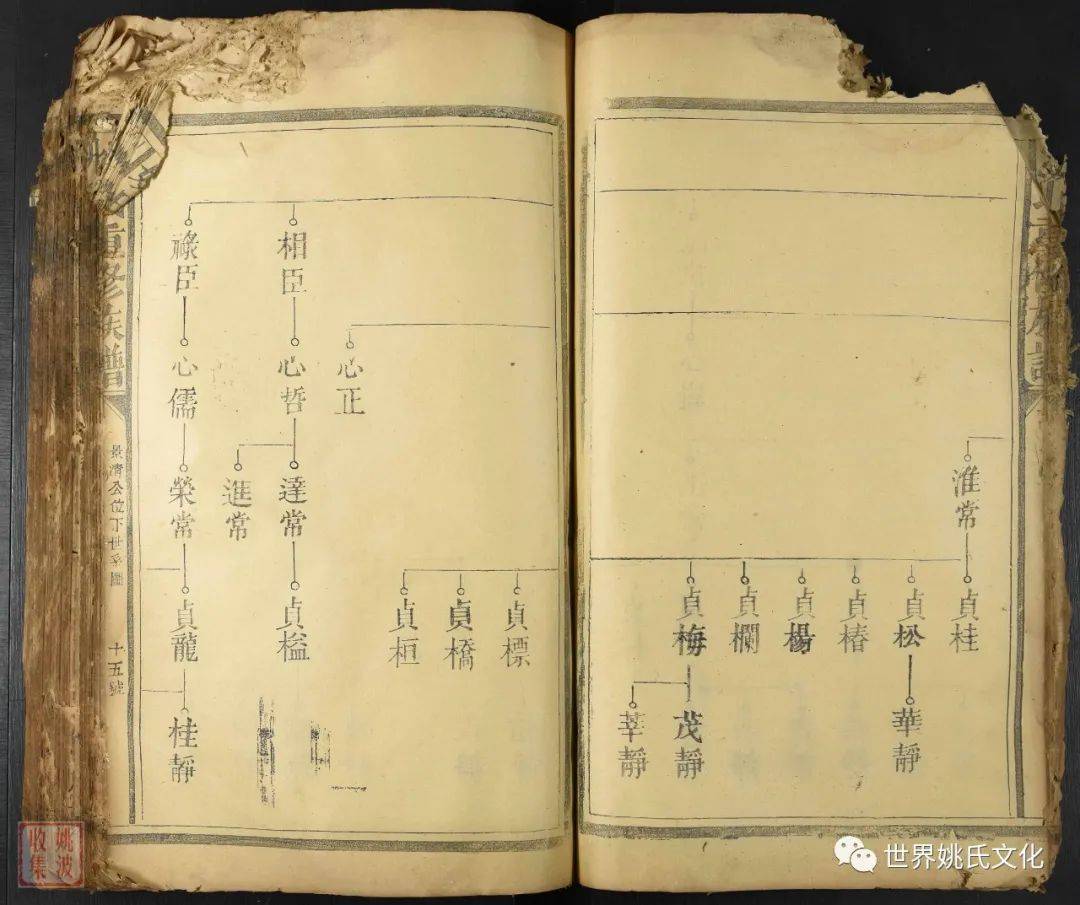 淮常
貞桂
貞松
華靜
貞椿
貞楊
貞欄
貞梅
茂靜
莘靜
族譜
貞標
貞橋
貞桓
心正
相臣
心哲
達常
進常
貞榏
祿臣
心儒
榮常
貞龍
桂靜
重修族譜
景清公位下世系圖
十五號
姚波
收集
世界姚氏文化